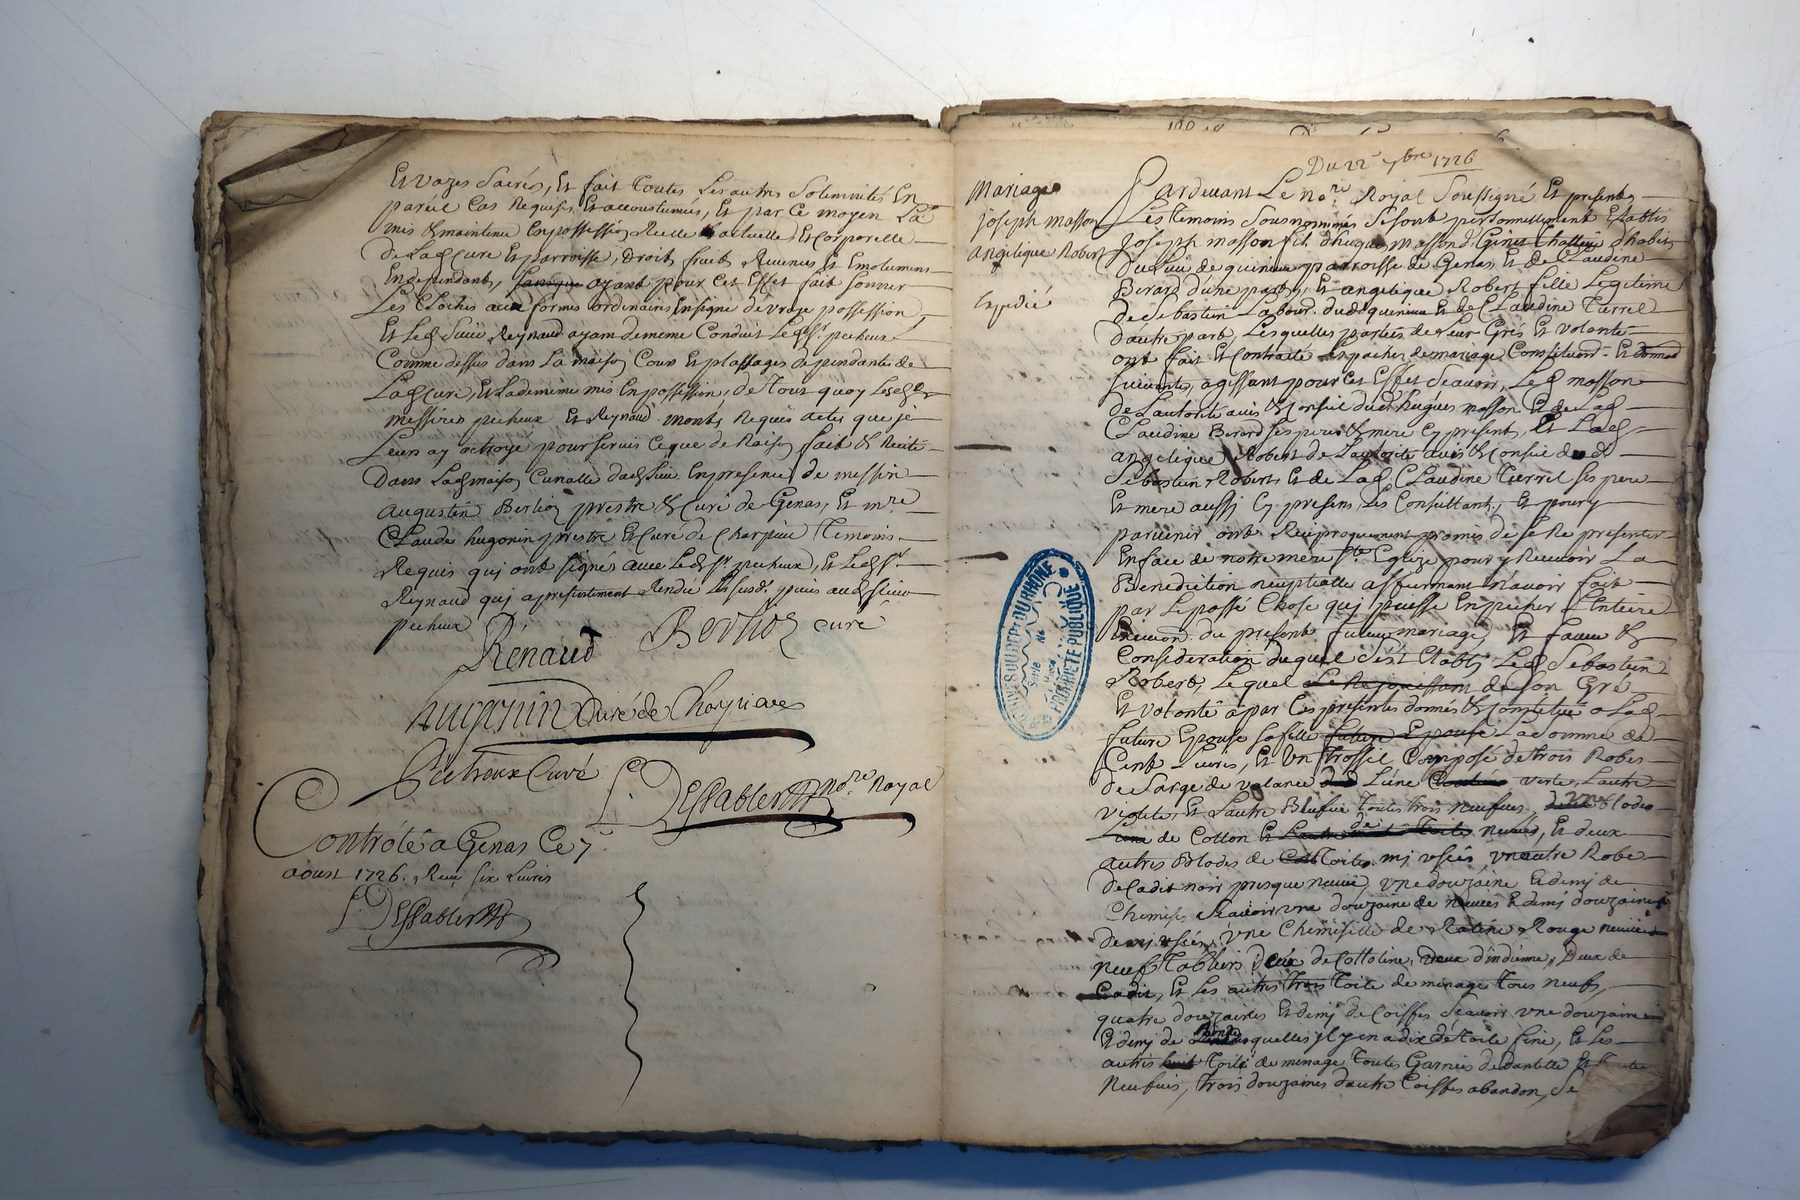 Et vazes Sacrés, Et fait Toutes Les autres Solemnités En
pareil Cas Requises Et accoustumées, Et par Ce moyen La
mis & maintenu En possession Reelle actuelle Et Corporelle
de Lad Cure Et parroisse, Droits fruits Revenus Et Emolumens
En dependants, ayant pour Cet Effet fait Sonner
Les Cloches aux formes ordinaires En signe de vraye possession,
Et Led Reynaud ayant de meme Conduit Led Sr. pecheux
Comme dessus dans La maison Cour Et plassages dependants de
Lad Cure, Et La de meme mis En possession, de Tout quoy Lesd
messires pecheux Et Reynaud m'ont Requis actes que je
Leur ay octroyé pour servir Ce que de Raison fait & Recité
Dans Lad maison Curialle En presence de messire
augustin Berlioz prestre & Curé de Genas, Et mre
Claude hugonin prestre Et Curé de Temoins
Requis qui ont signés avec Led Sr. pecheux, Et Led Sr.
Reynaud qui a presentement Rendu Les susd.
pecheux
Renaud Berlioz curé
hugonin Curé de
Curé
Nore. Royal
Controlé a Genas Ce 7
aoust 1726. Reçu six Livres
Du 22e 7bre 1726
Mariage
joseph masson
angelique Robert
Expedié
Pardevant Le nore. Royal Soussigné Et presents
Les temoins Sousnommés Se sont personnellement Establis
joseph masson fils d'hugues masson habit
du Lieu de quinieu parroisse de Genas Et de Claudine
Berard d'une part, Et angelique Robert fille Legitime
de Sebastien Labour. dud quinieu Et de Claudine Terrel
d'autre part, Lesquelles parties de Leur Grés Et volonté
ont fait Et Contracté Les paches de mariage Constitution Et
suivante, agissant pour Cet Effet Scavoir, Led masson
de L'autorité avis & Conseil dud hugues masson Et de Lad
Claudine Berard ses pere & mere Cy presents, Et Lad
angelique Robert de L'autorité avis & Conseil dud
Sebastien Robert Et de Lad Claudine Terrel ses pere
Et mere aussi Cy presens, Les Consultant, Et pour y
parvenir ont Reciproquement promis de se Representer
En face de notre mere Ste. Eglize pour y Recevoir La
Benediction nuptialle affirmant n'avoir fait
par Le passé Chose qui puisse Enpecher L'entiere
du present futur mariage, Et En faveur &
Consideration duquel S'est Etably Led Sebastien
Robert, Lequel Le Rejouissant de son Gré
Et volonté a par Ces presentes donné & Constitué a Lad
future Epouse sa fille future Epouse La somme de
Cent Livres, Et Un Trossel Composé de trois Robes
de Sarge de valance L'une verte, L'autre
violete, Et L'autre Bleufue Toutes trois neufves, une blode
de Cotton Et de Toile neuves, Et deux
autres Blodes de Toiles mj usées, une autre Robe
de Cadit noir presque neuve, Une douzaine Et demj de
Chemises Scavoir une douzaine de neuves Et demj douzaine
demj usées, Une Chemisette de Ratine Rouge neuve
neuf Tabliers deux de Cottoline, deux d'indienne, Deux de
Cadit, Et Les autres Trois Toile de menage Tous neufs,
quatre douzaines Et demj de Coiffes Scavoir une douzaine
Et demj de Desquelles il y en a dix de Toile fine, Et Les
autres huit Toile de menage Toutes Garnies de dantelle Et
Neufves, Trois douzaines d'autre Coiffes a bandon, de
ARCHIVES DU DEPT DU RHÔNE
PROPRIÉTÉ PUBLIQUE